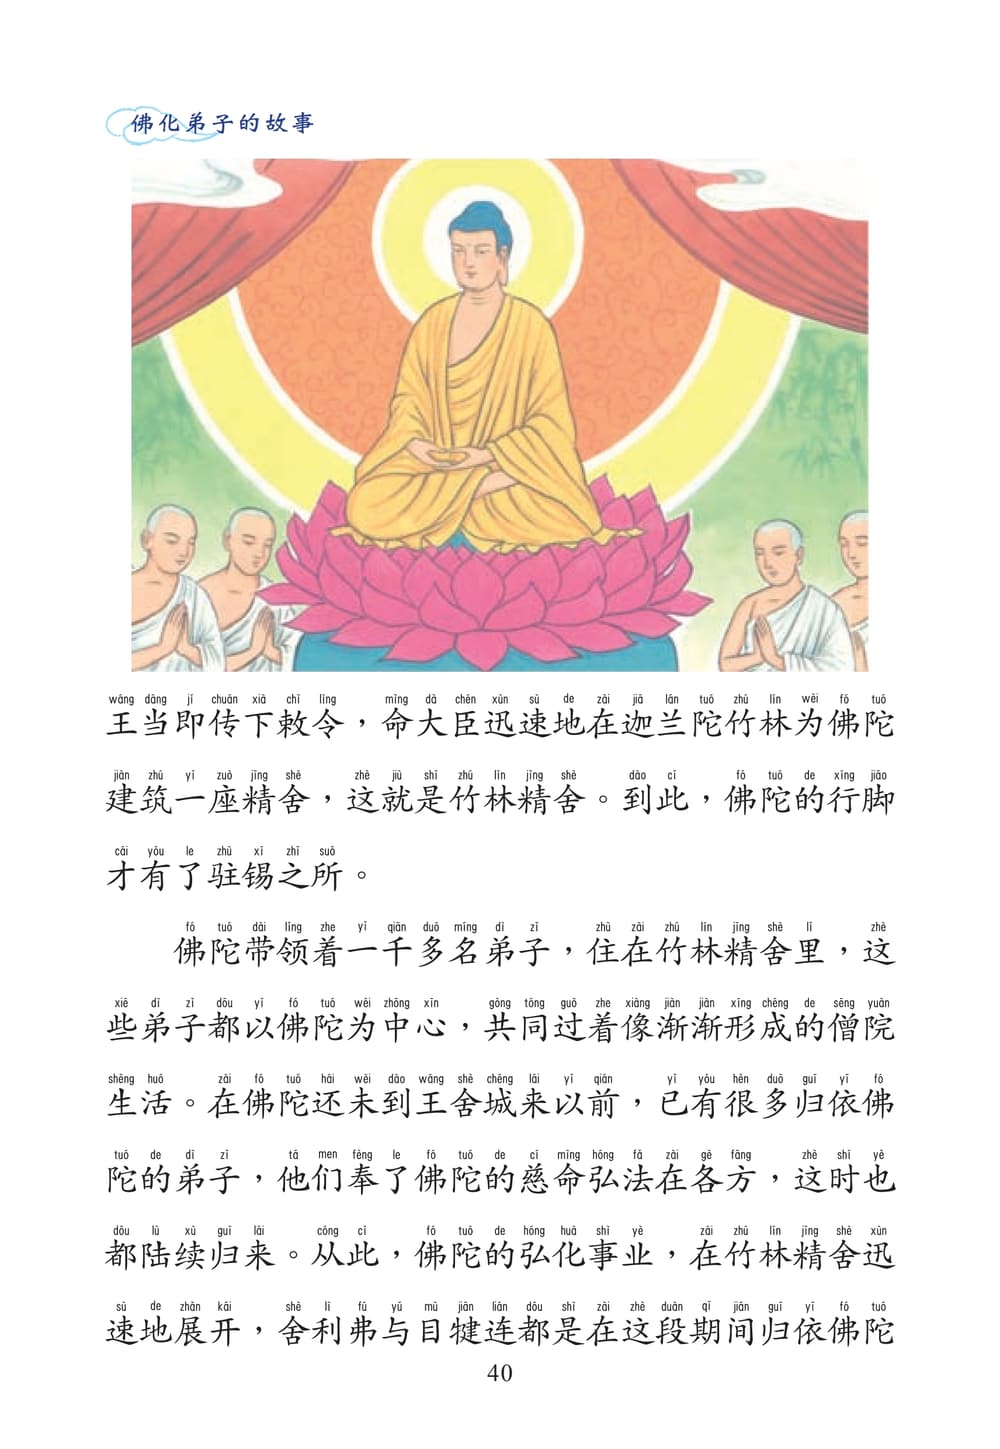 佛化弟子的故事
wáng dāng jí chuán xià chì lìng mìng dà chén xùn sù de zài jiā lán tuó zhú lín wèi fó tuó
王当即传下敕令，命大臣迅速地在迦兰陀竹林为佛陀
jiàn zhú yí zuò jīng shè zhè jiù shì zhú lín jīng shè dào cǐ fó tuó de xíng jiǎo
建筑一座精舍，这就是竹林精舍。到此，佛陀的行脚
cái yǒu le zhù xī zhī suǒ
才有了驻锡之所。
fó tuó dài lǐng zhe yì qiān duō míng dì zǐ zhù zài zhú lín jīng shè lǐ zhè
佛陀带领着一千多名弟子，住在竹林精舍里，这
xiē dì zǐ dōu yǐ fó tuó wéi zhōng xīn gòng tóng guò zhe xiàng jiàn jiàn xíng chéng de sēng yuàn
些弟子都以佛陀为中心，共同过着像渐渐形成的僧院
shēng huó zài fó tuó hái wèi dào wáng shè chéng lái yǐ qián yǐ yǒu hěn duō guī yī fó
生活。在佛陀还未到王舍城来以前，已有很多归依佛
tuó de dì zǐ tā men fèng le fó tuó de cí mìng hóng fǎ zài gè fāng zhè shí yě
陀的弟子，他们奉了佛陀的慈命弘法在各方，这时也
dōu lù xù guī lái cóng cǐ fó tuó de hóng huà shì yè zài zhú lín jīng shè xùn
都陆续归来。从此，佛陀的弘化事业，在竹林精舍迅
sù de zhǎn kāi shè lì fú yǔ mù jiān lián dōu shì zài zhè duàn qī jiān guī yī fó tuó
速地展开，舍利弗与目犍连都是在这段期间归依佛陀
40